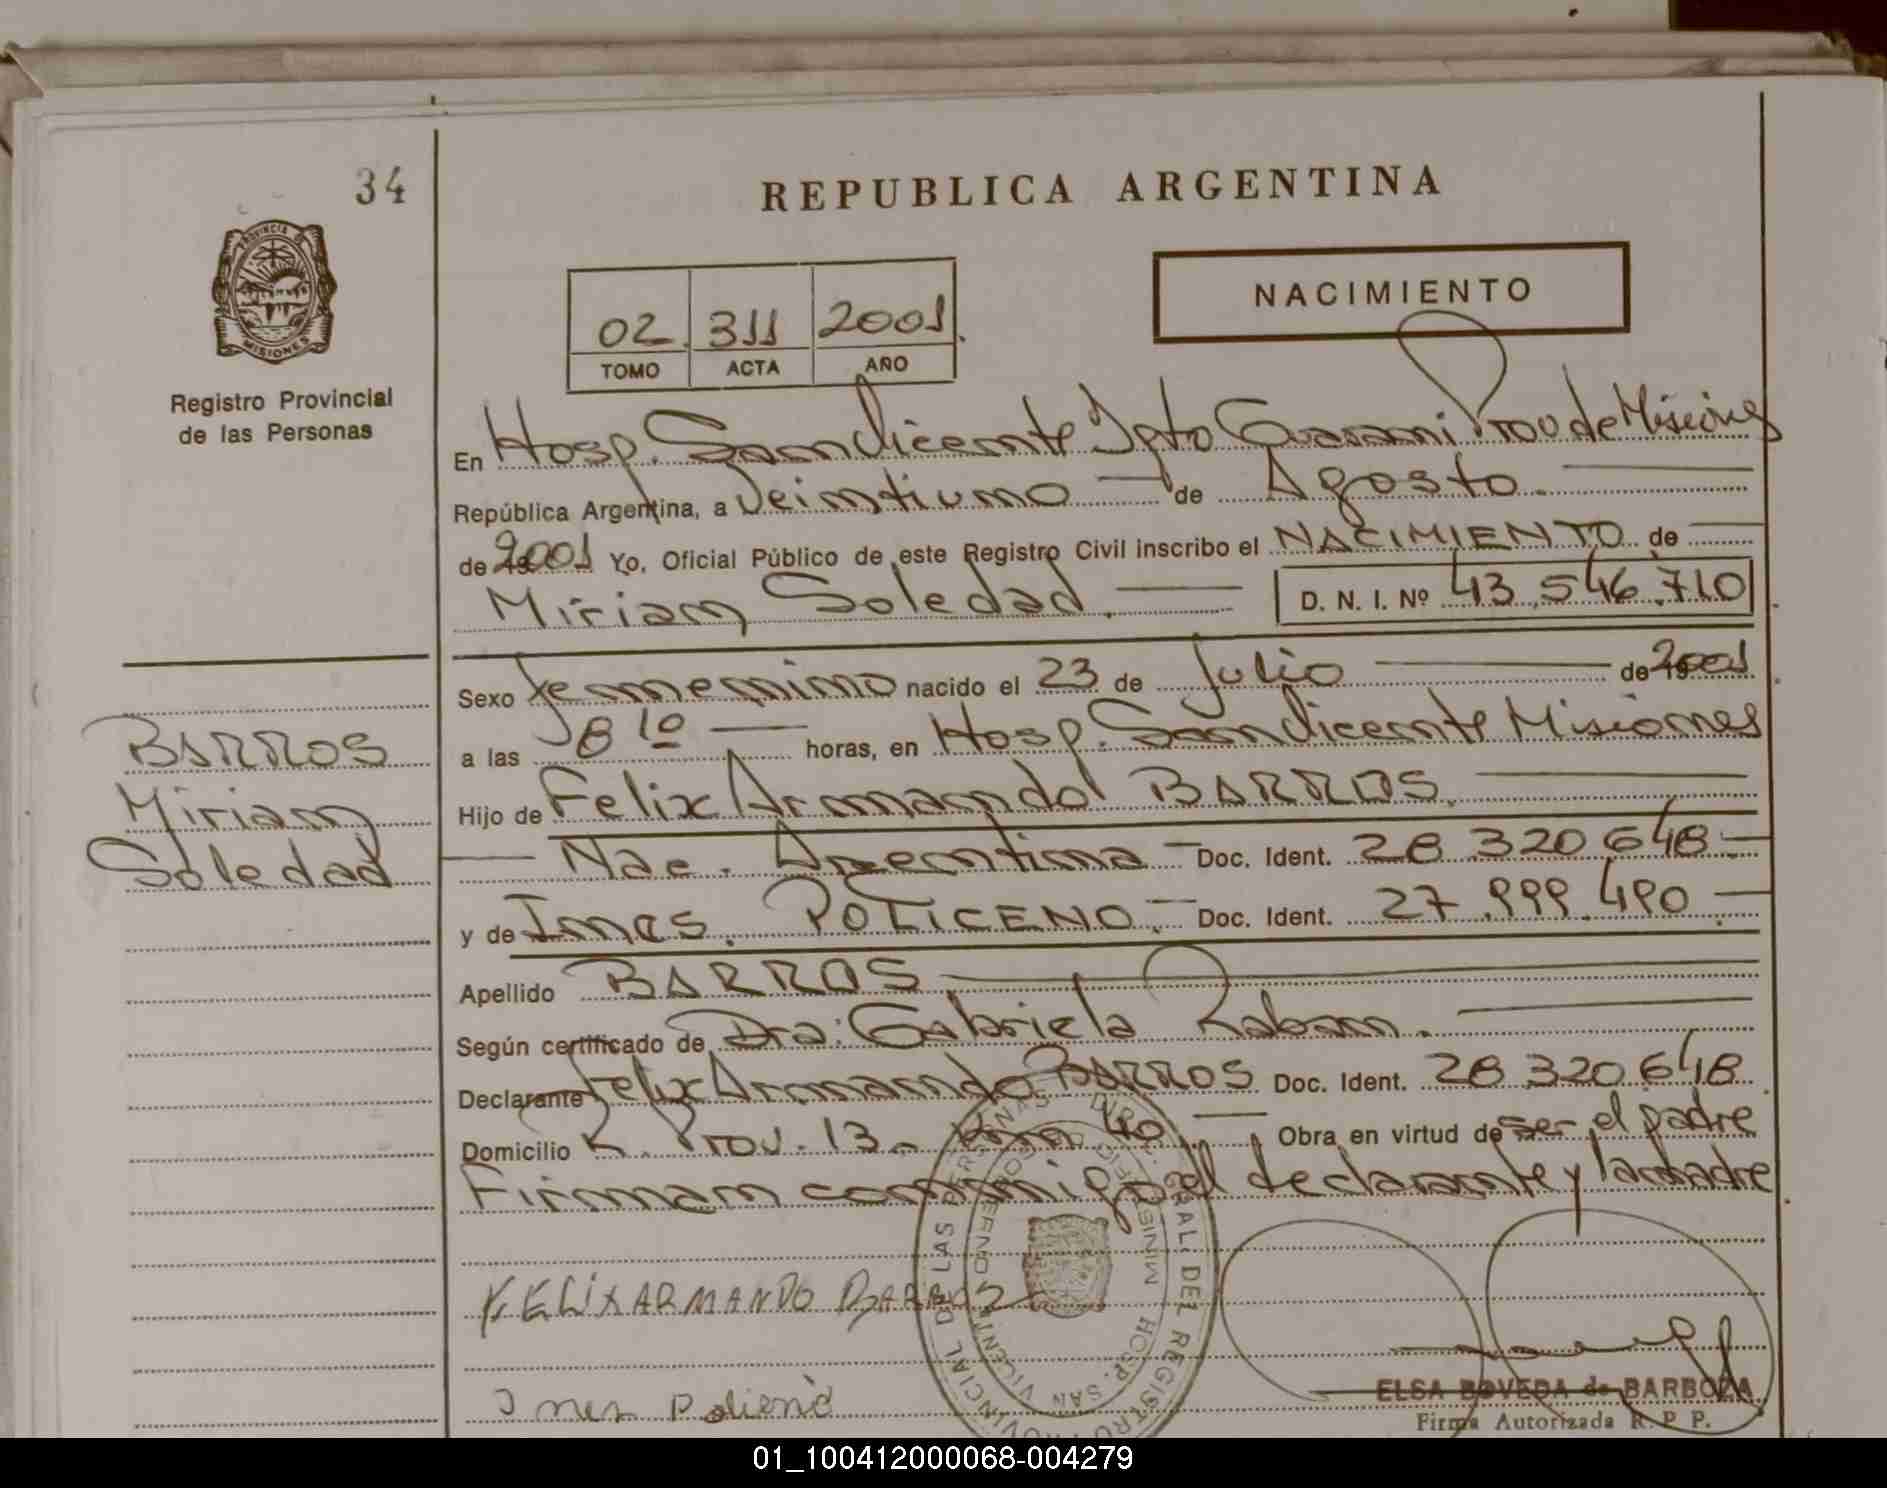 34
REPUBLICA ARGENTINA
PROVINCIA DE
MISIONES
Registro Provincial
de las Personas
02 311 2001
TOMO ACTA AÑO
NACIMIENTO
En Hosp. San Vicente Dpto Guarani Prov de Misiones
República Argentina, a Veintiuno de Agosto.
de 2001 Yo, Oficial Público de este Registro Civil inscribo el NACIMIENTO de
Miriam Soledad. D. N. I. Nº 43.546.710
Sexo femenino nacido el 23 de Julio de 2001
a las 8 10 horas, en Hosp. San Vicente Misiones
BARROS
Miriam
Soledad
Hijo de Felix Armando BARROS.
Nac. Argentina Doc. Ident. 28 320 648
y de Ines. POLICENO. Doc. Ident. 27.999.490
Apellido BARROS
Según certificado de Dra: Gabriela
Declarante Felix Armando BARROS Doc. Ident. 28 320 648
Domicilio R. Prov. 13 - km 40 Obra en virtud de ser el padre
Firman conmigo el declarante y la madre
FELIX ARMANDO BARROS
Ines
DIR. GRAL. DEL REGISTRO PROVINCIAL DE LAS PERSONAS
HOSP. SAN VICENTE
ELSA BOVEDA de BARBOZA
Firma Autorizada R. P. P.
01_100412000068-004279